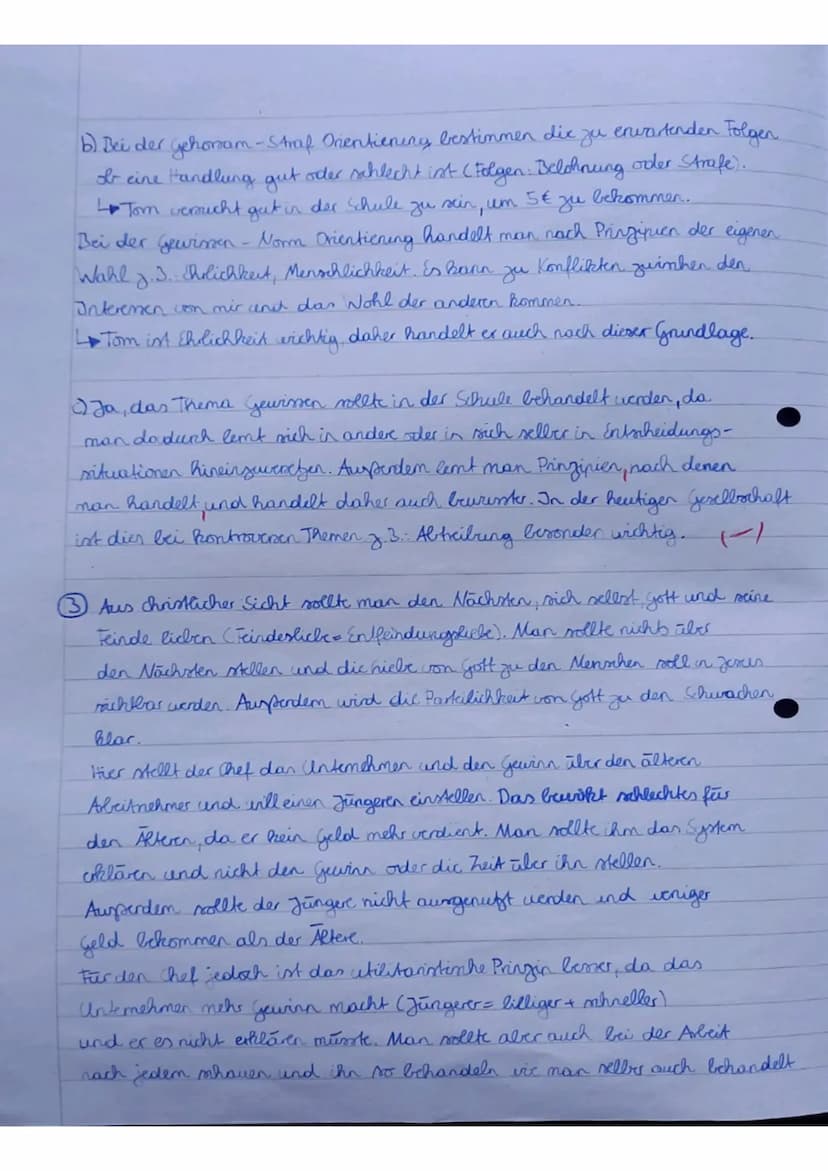 b) Bei der Gehorsam-Straf Orientierung bestimmen die zu erwartenden Folgen
ob eine Handlung gut oder schlecht ist (Folgen: Belohnung oder Strafe).
↳ Tom versucht gut in der Schule zu sein, um 5€ zu bekommen.
Bei der Gewissen-Norm Orientierung handelt man nach Prinzipien der eigenen
Wahl z.B. Ehrlichkeit, Menschlichkeit. Es kann zu Konflikten zwischen den
Interessen von mir und das Wohl der anderen kommen.
↳ Tom ist Ehrlichkeit wichtig, daher handelt er auch nach dieser Grundlage.
c) Ja, das Thema Gewissen sollte in der Schule behandelt werden, da
man dadurch lernt sich in andere oder in sich selber in Entscheidungs-
situationen hineinzuversetzen. Außerdem lernt man Prinzipien, nach denen
man handelt, und handelt daher auch bewusster. In der heutigen Gesellschaft
ist dies bei kontroversen Themen z.B.: Abtreibung besonder wichtig. (-)
③ Aus christlicher Sicht sollte man den Nächsten, sich selbst, Gott und seine
Feinde lieben (Feindesliebe = Entfeindungsliebe). Man sollte nichts über
den Nächsten stellen und die Liebe von Gott zu den Menschen soll in Jesus
sichtbar werden. Außerdem wird die Parteilichkeit von Gott zu den Schwachen
klar.
Hier stellt der Chef das Unternehmen und den Gewinn über den älteren
Arbeitnehmer und will einen Jüngeren einstellen. Das bewirkt schlechtes für
den Älteren, da er kein Geld mehr verdient. Man sollte ihm das System
erklären und nicht den Gewinn oder die Zeit über ihn stellen.
Außerdem sollte der Jüngere nicht ausgenutzt werden und weniger
Geld bekommen als der Ältere.
Für den Chef jedoch ist das utilitaristische Prinzip besser, da das
Unternehmen mehr Gewinn macht (Jüngerer = billiger + schneller)
und er es nicht erklären müsste. Man sollte aber auch bei der Arbeit
nach jedem schauen und ihn so behandeln wie man selber auch behandelt